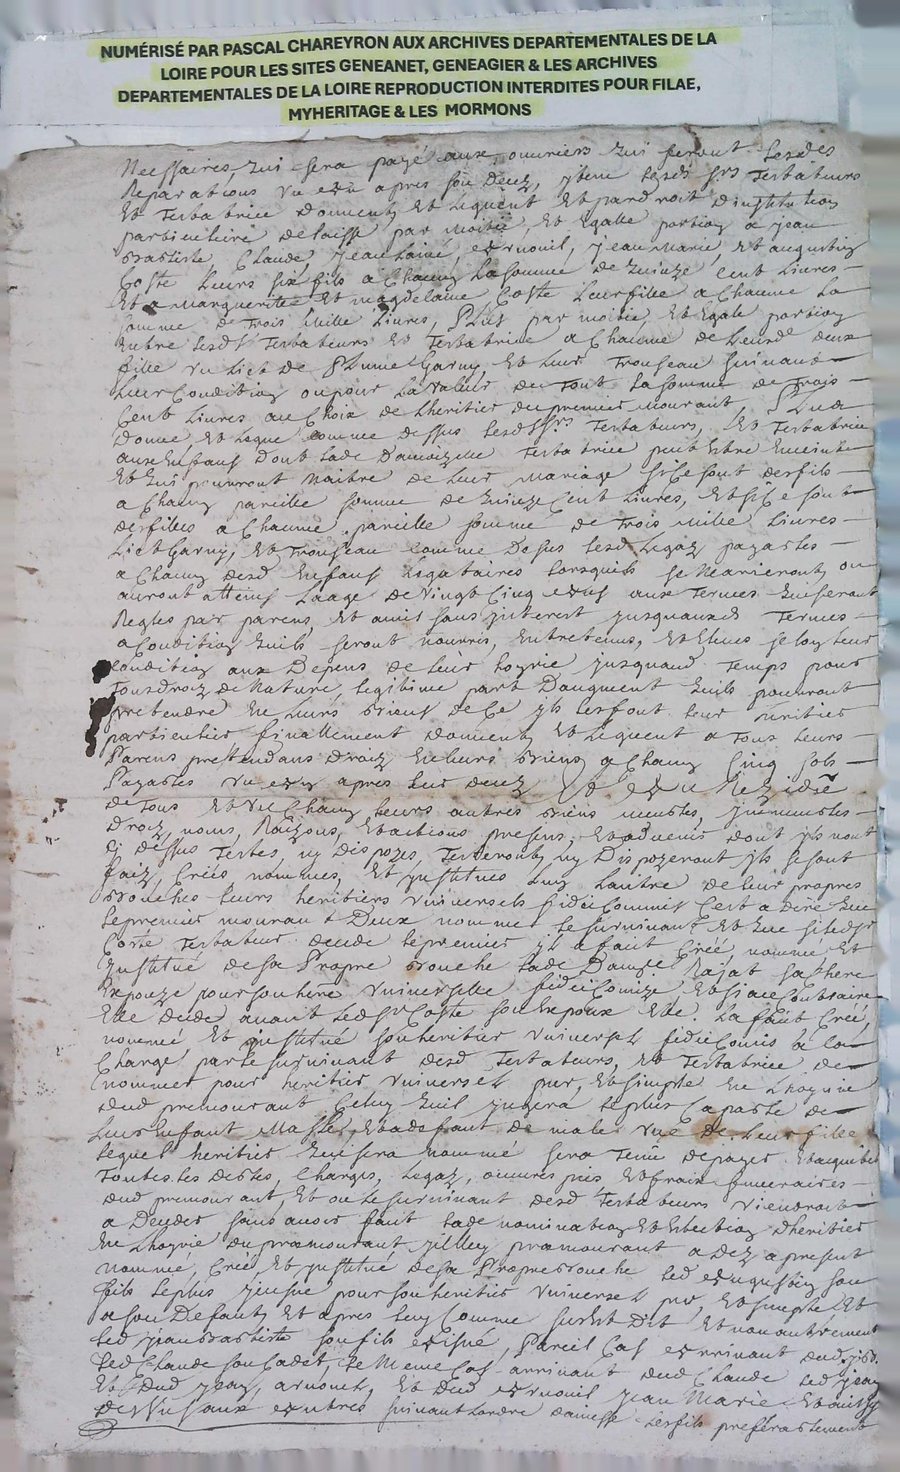 NUMÉRISÉ PAR PASCAL CHAREYRON AUX ARCHIVES DEPARTEMENTALES DE LA
LOIRE POUR LES SITES GENEANET, GENEAGIER & LES ARCHIVES
DEPARTEMENTALES DE LA LOIRE REPRODUCTION INTERDITES POUR FILAE,
MYHERITAGE & LES MORMONS
Necessaires, qui sera payé aux ouvriers qui feront lesdes
Reparations un an apres son decez, ytem lesds srs Testateurs
Et Testatrice donnent Et Leguent Et par droit d'institution
particuliere delaisse par moitié, Et Egalle portion a jean
Baptiste, Claude, jean jean Marie, Et augustin
Coste Leurs six fils a Chacun La somme de quinze Cent Livres
Et a Margueritte Et magdelaine Coste Leur fille a Chacune La
somme de Trois Mille Livres, Plus par moitié Et Egale portion
Entre lesds Testateurs Et Testatrice a Chacune de Leursd deux
fille un lict de Plume Garny, Et Leur Trousseau suivant
Leur Condition ou pour La valeur du Tout La somme de Trois
Cent Livres au Choix de Lheritier du premier mourant, Plus
donne Et Legue comme dessus lesds srs Testateurs, Et Testatrice
aux Enfans dont lade Damoizelle Testatrice peut Estre Enceinte
Et qui pourront Naitre de Leur mariage si Ce sont des fils
a Chacun pareille somme de quinze Cent Livres, Et si Ce sont
des filles a Chacune pareille somme de Trois Mille Livres
Lict Garny, Et Trousseau comme Dessus lesd Legaz payables
a Chacun desd Enfans Legataires lorsquils se Marieront ou
auront atteins Laage de vingt Cinq ans aux Termes qui seront
Regles par parens, Et amis sans jnterest jusquausd Termes
a Condition quils seront nourris, Entretenus, Et Eleves selon leur
Condition aux Depens de leur hoyrie jusquaud Temps pour
Tous droiz de Nature, legitime part Daugment quils pourront
pretendre En Leurs Biens de Ce yls les font leur heritier
particulier finallement donnent Et Leguent a Tous leurs
Parens prettendans Droiz En leurs Biens a Chacun Cinq sols
Payables un an apres leur decez Et au Rezidu
de tous Et un Chacun leurs autres Biens meubles, jmmeubles
Droiz, noms, Raizons, Et actions presens, Et advenir dont yls nont
Cy dessus Testes, ny Disposes, Testeront, ny Dispozeront yls se sont
faiz, Créés nommes, Et jnstitues Luy Lautre de leur propres
Bouches leurs heritiers universels fideiCommis Cest a dire que
le premier mourant Deux nomme le survivant Et que si led sr
Coste Testateur decede le premier yl a fait Créé, nommé, Et
jnstitué de sa Propre Bouche lade Damlle Rajat sa chere
Expouze pour son heritiere universelle fideiComize, Et si au Contraire
Elle decede avant led sr Coste son Expoux Elle La fait Créé,
nommé Et jnstitué son heritier universel fideiComis a la
Charge par le survivant desd Testateurs, Et Testatrice de
nommer pour heritier universel pur, Et simple En Lhoyrie
dud premourant Celuy quil jugera le plus Capable de
Leur Enfant Masle, Et a defaut de male une de Leur fille
lequel heritier qui sera nommé sera Tenu de payer Et acquiter
Toutes les debtes, Charges, Legaz, œuvres pies Et frais funeraires
dud premourant, Et ou le survivant desd Testateurs viendroit
a Deceder sans avoir fait lade nomination Et Election dheritier
En Lhoyrie du premourant premourant a dez a present
nommé, Créé, Et jnstitué de sa Propre Bouche led augustin son
fils le plus jeune pour son heritier universel pur, Et simple Et
a son Defaut, Et apres luy Comme surest dit Et non autrement
led jean Baptiste son fils aisné, Pareil Cas arrivant dud
led Claude son Cadet, Le meme Cas arrivant dud Claude led jean
Et dud jean, Et dud jean Marie Et ainsy
des uns aux autres suivant Lordre dainesse les fils preferablement